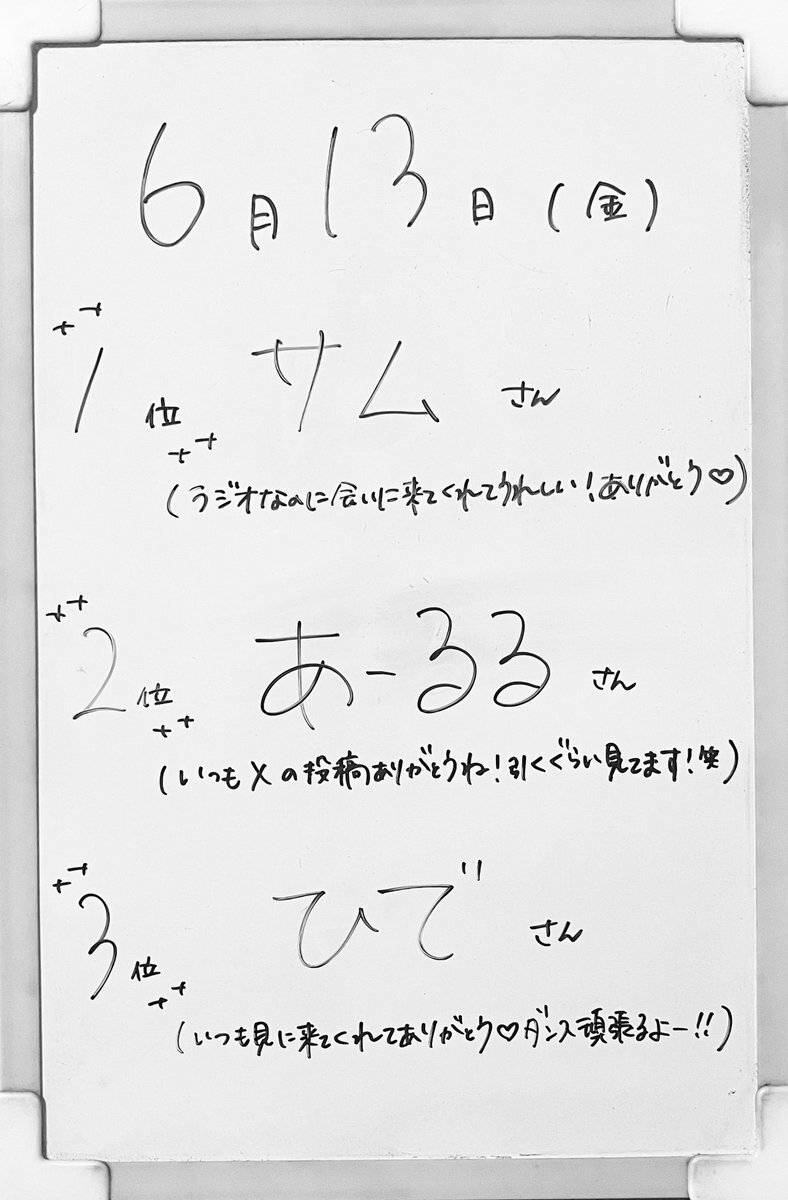 6月13日(金)
1位 サムさん
(ラジオなのに会いに来てくれてうれしい!ありがとう♡)
2位 あーるるさん
(いつもXの投稿ありがとうね!引くぐらい見てます!笑)
3位 ひでさん
(いつも見に来てくれてありがとう♡ダンス頑張るよー!!)